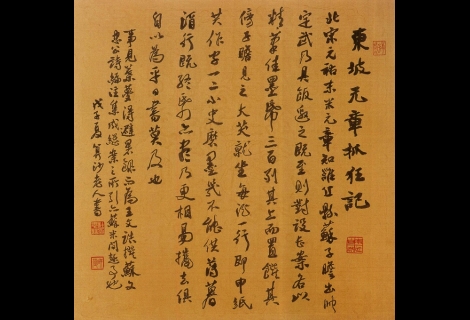 東坡元章抓狂記
北宋元祐末米元章知雍丘縣蘇子瞻出帥
定武乃具飯邀之既至則對設長案各以
精筆佳墨紙三百列其上而置饌其
傍子瞻見之大笑就坐每酒一行即申紙
共作字一二小史磨墨幾不能供薄暮
酒行既終紙亦盡乃更相易攜去俱
自以為平日書莫及也
事見葉夢得避暑錄話而為王文誥撰蘇文
忠公詩編注集成總案之所引亦蘇米間趣事也
戊子夏沙老人書